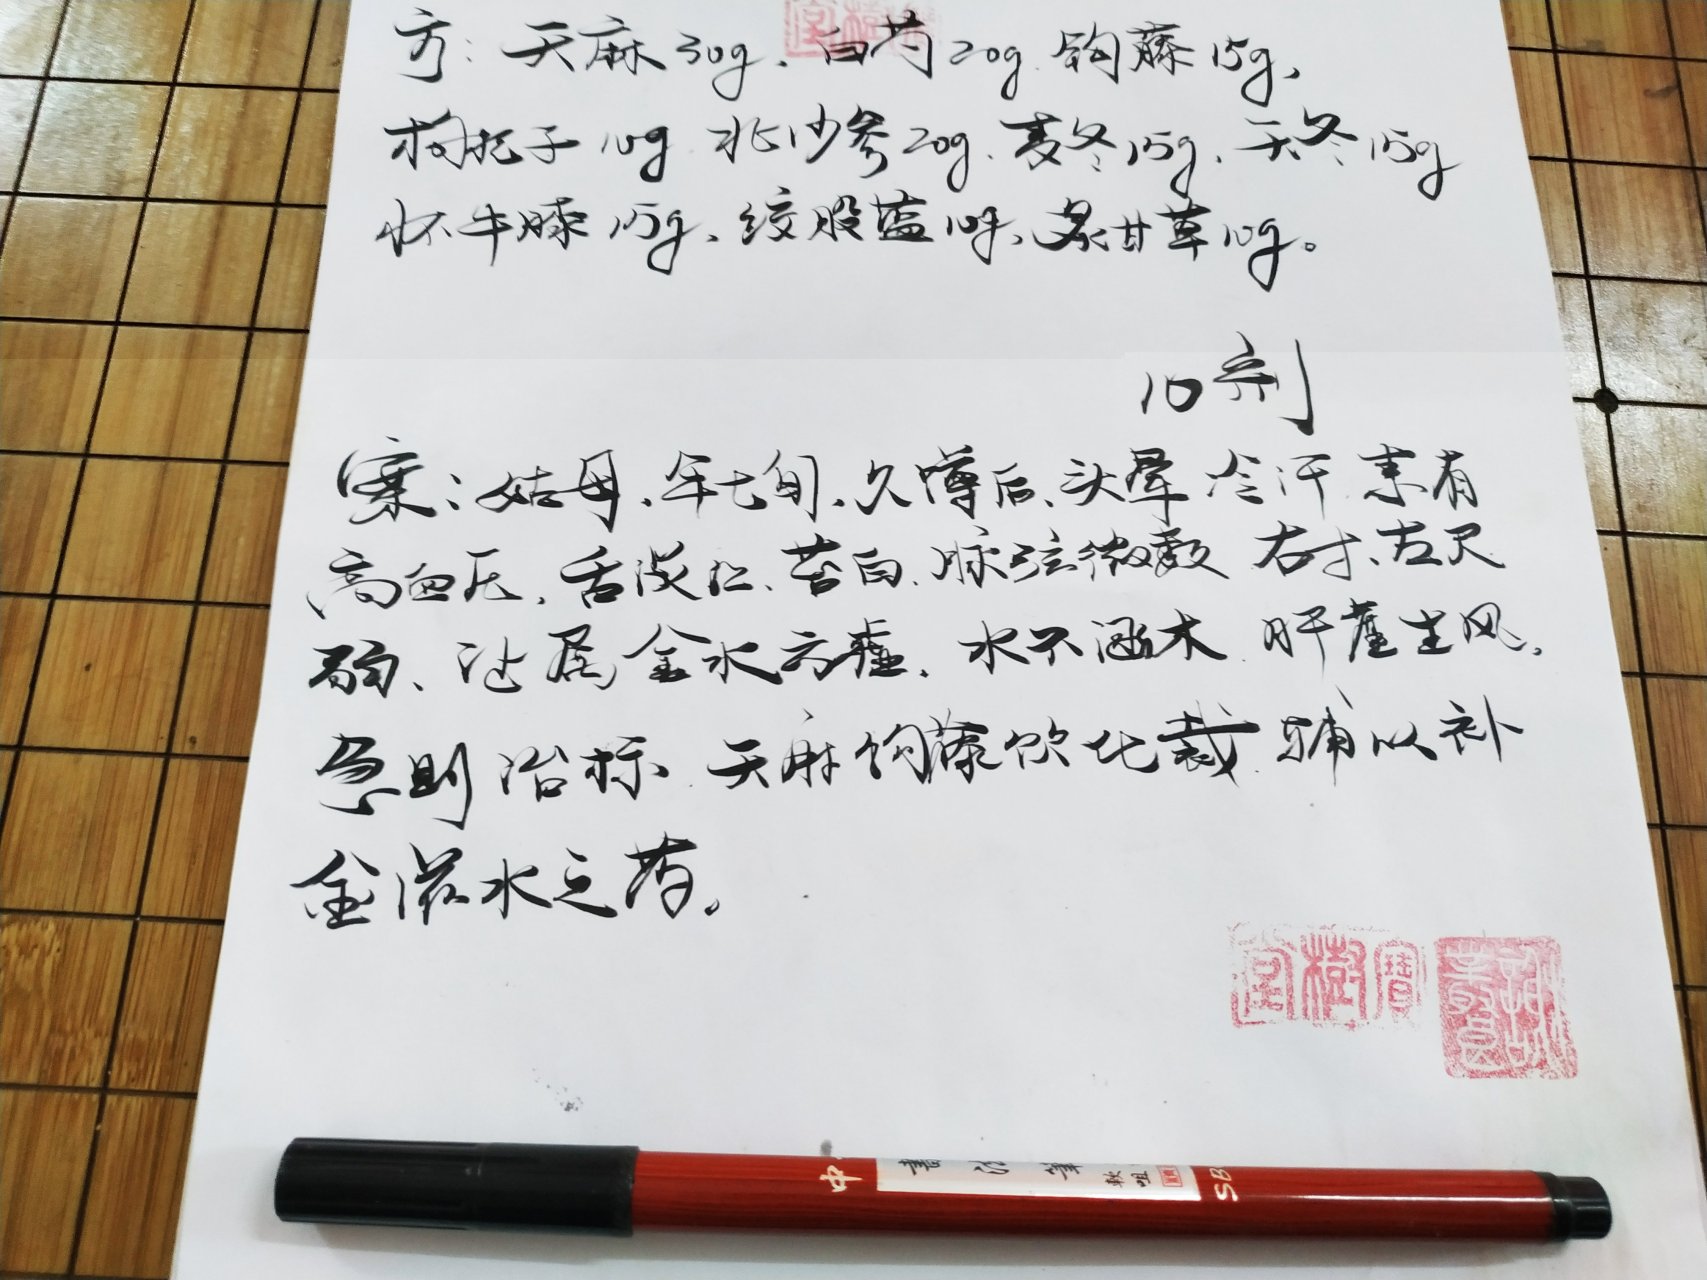 方：天麻30g、白芍20g、钩藤15g、
枸杞子10g、北沙参20g、麦冬15g、天冬15g
怀牛膝15g、绞股蓝10g、炙甘草10g。
10剂
案：姑母、年七旬、久蹲后、头晕冷汗、素有
高血压、舌淡红、苔白、脉弦微数 右寸、左尺
弱、证属金水亏虚、水不涵木、肝虚生风、
急则治标、天麻钩藤饮化裁、辅以补
金滋水之药。
寶樹堂
中
書法筆
軟
SB